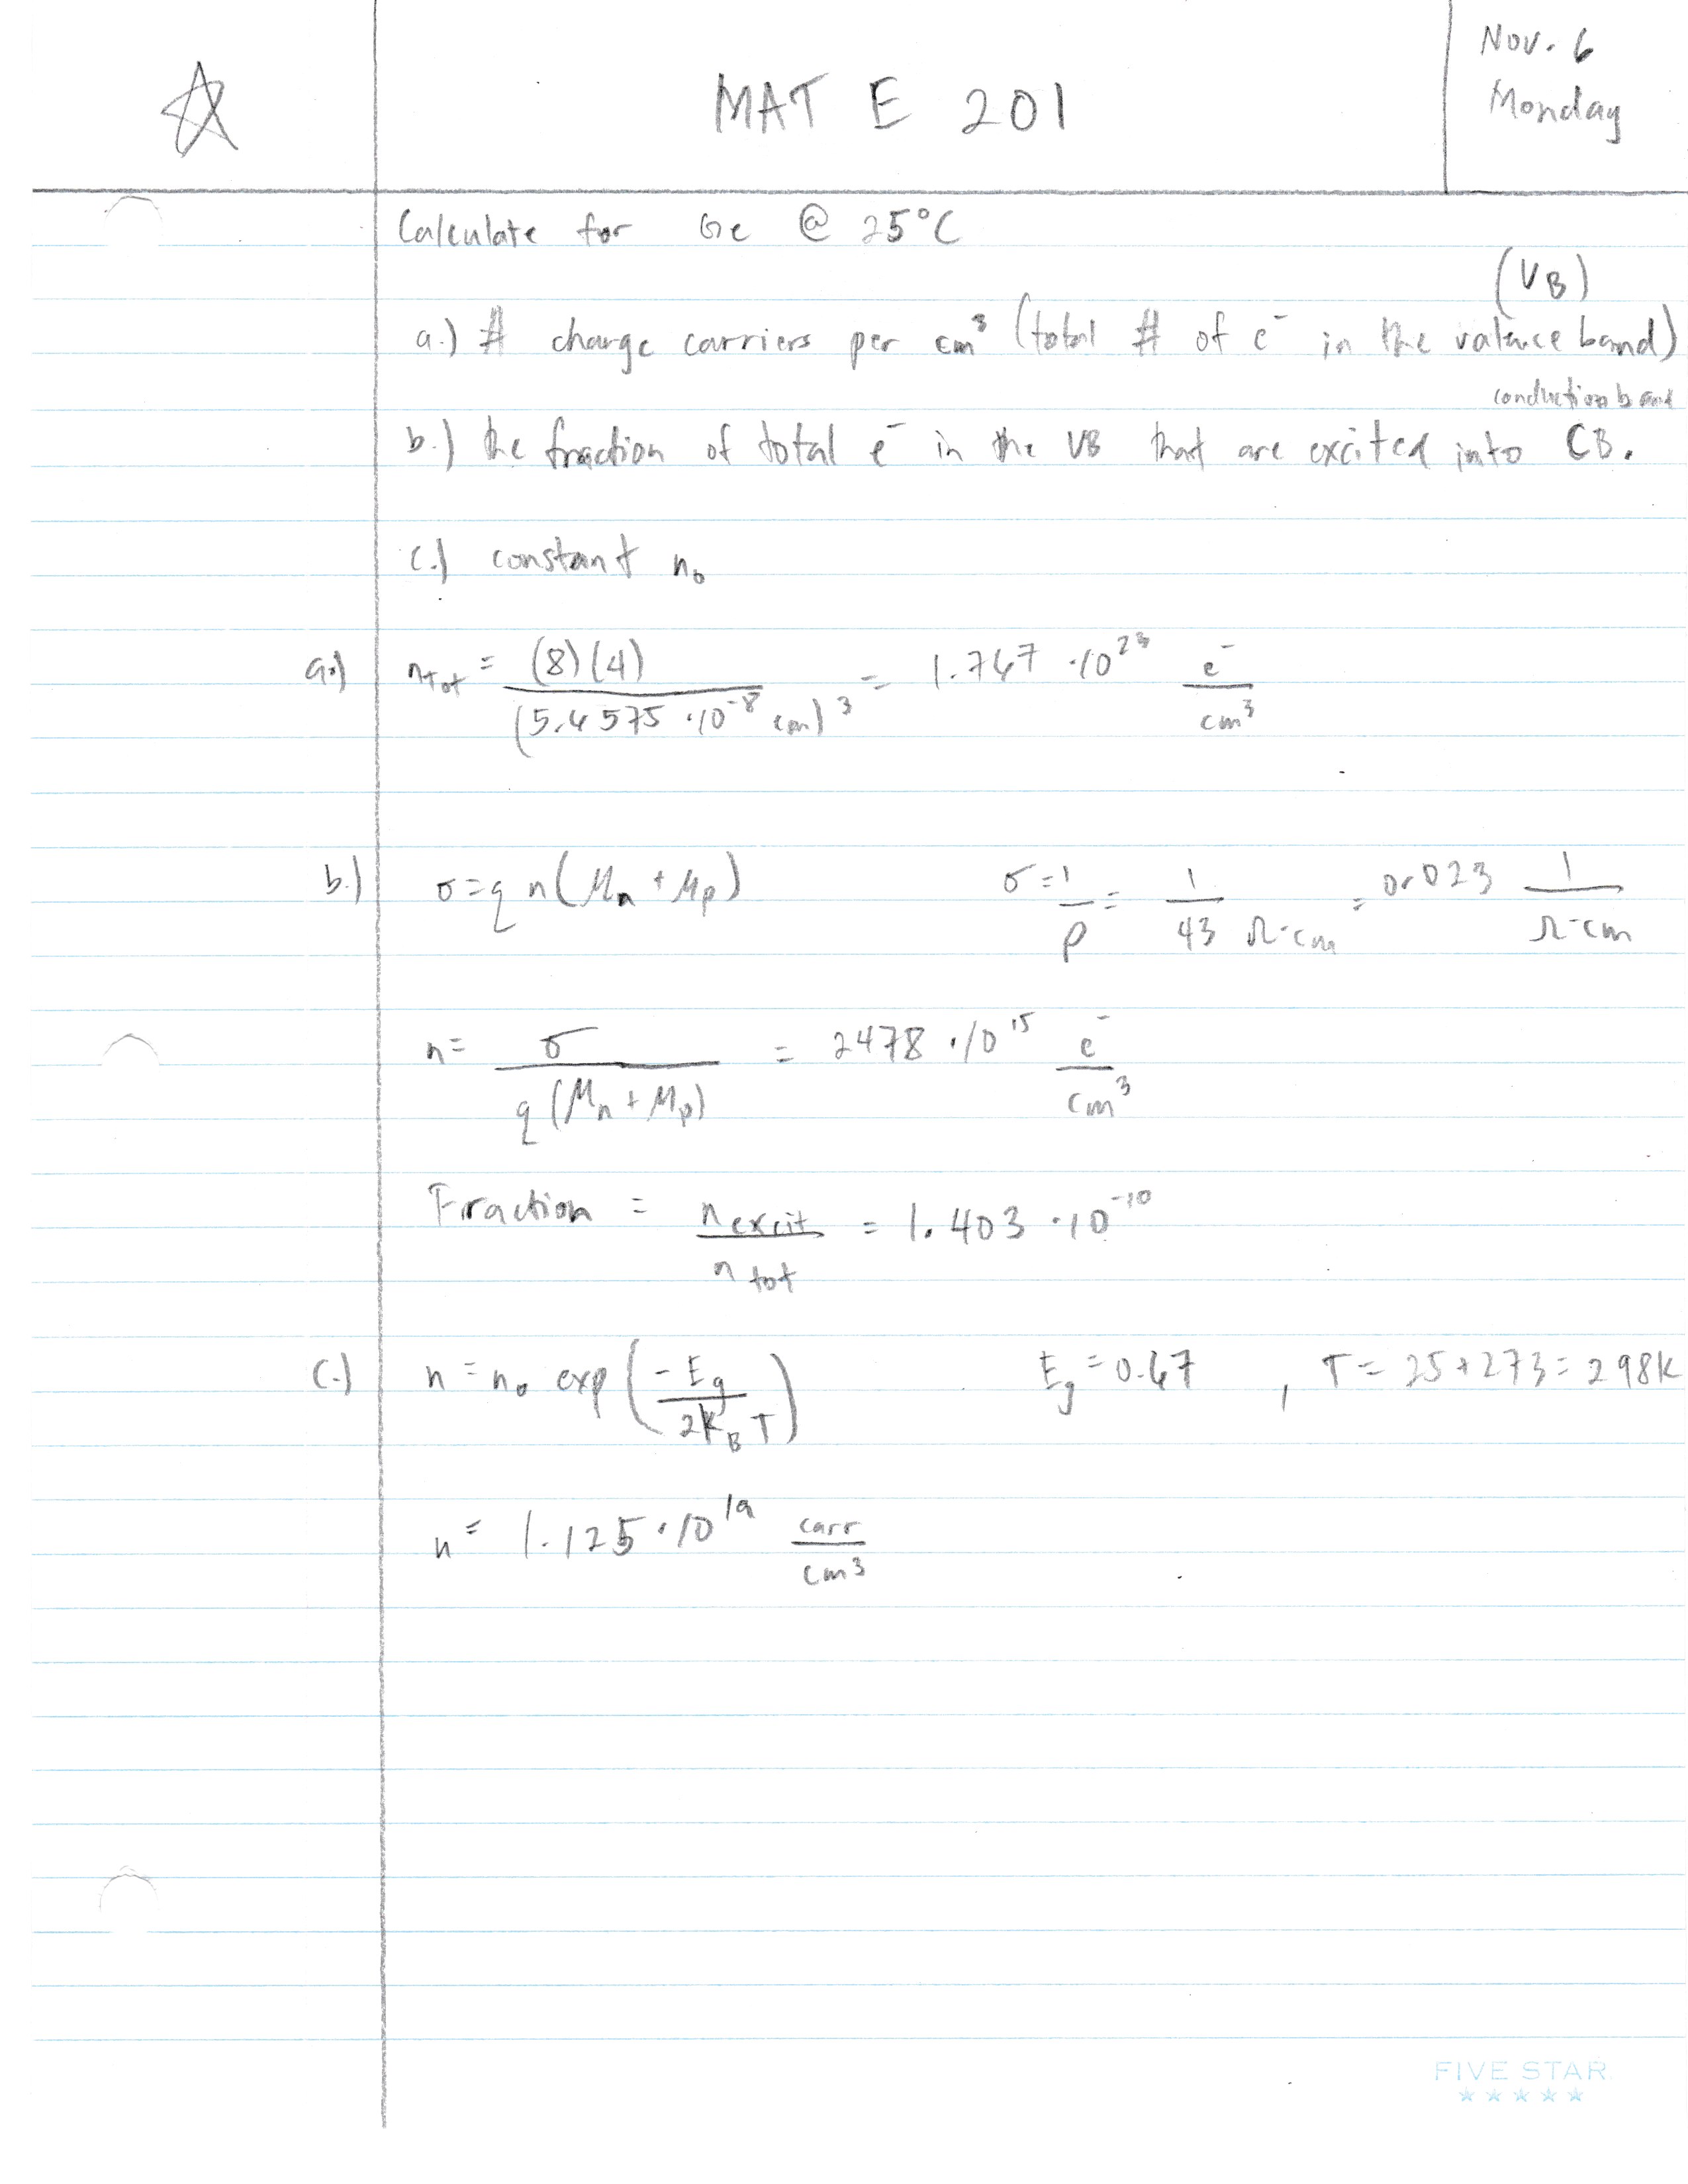 Nov. 6
Monday
MAT E 201
Calculate for Ge @ 25°C
(VB)
a.) # charge carriers per cm³ (total # of e⁻ in the valence band)
conduction band
b.) the fraction of total e⁻ in the VB that are excited into CB.
c.) constant n₀
a.) n_tot = (8)(4) / (5.6575 ·10⁻⁸ cm)³ = 1.767 ·10²³ e⁻/cm³
b.) σ = q n(μn + μp) σ = 1/ρ = 1/43 Ω-cm = 0.023 1/Ω-cm
n = σ / q(μn + μp) = 2478 ·10¹⁵ e⁻/cm³
Fraction = n excit / n tot = 1.403 ·10⁻¹⁰
c.) n = n₀ exp(-Eg / 2k_B T) Eg = 0.67 , T = 25 + 273 = 298K
n = 1.125 ·10¹⁹ carr/cm³
FIVE STAR